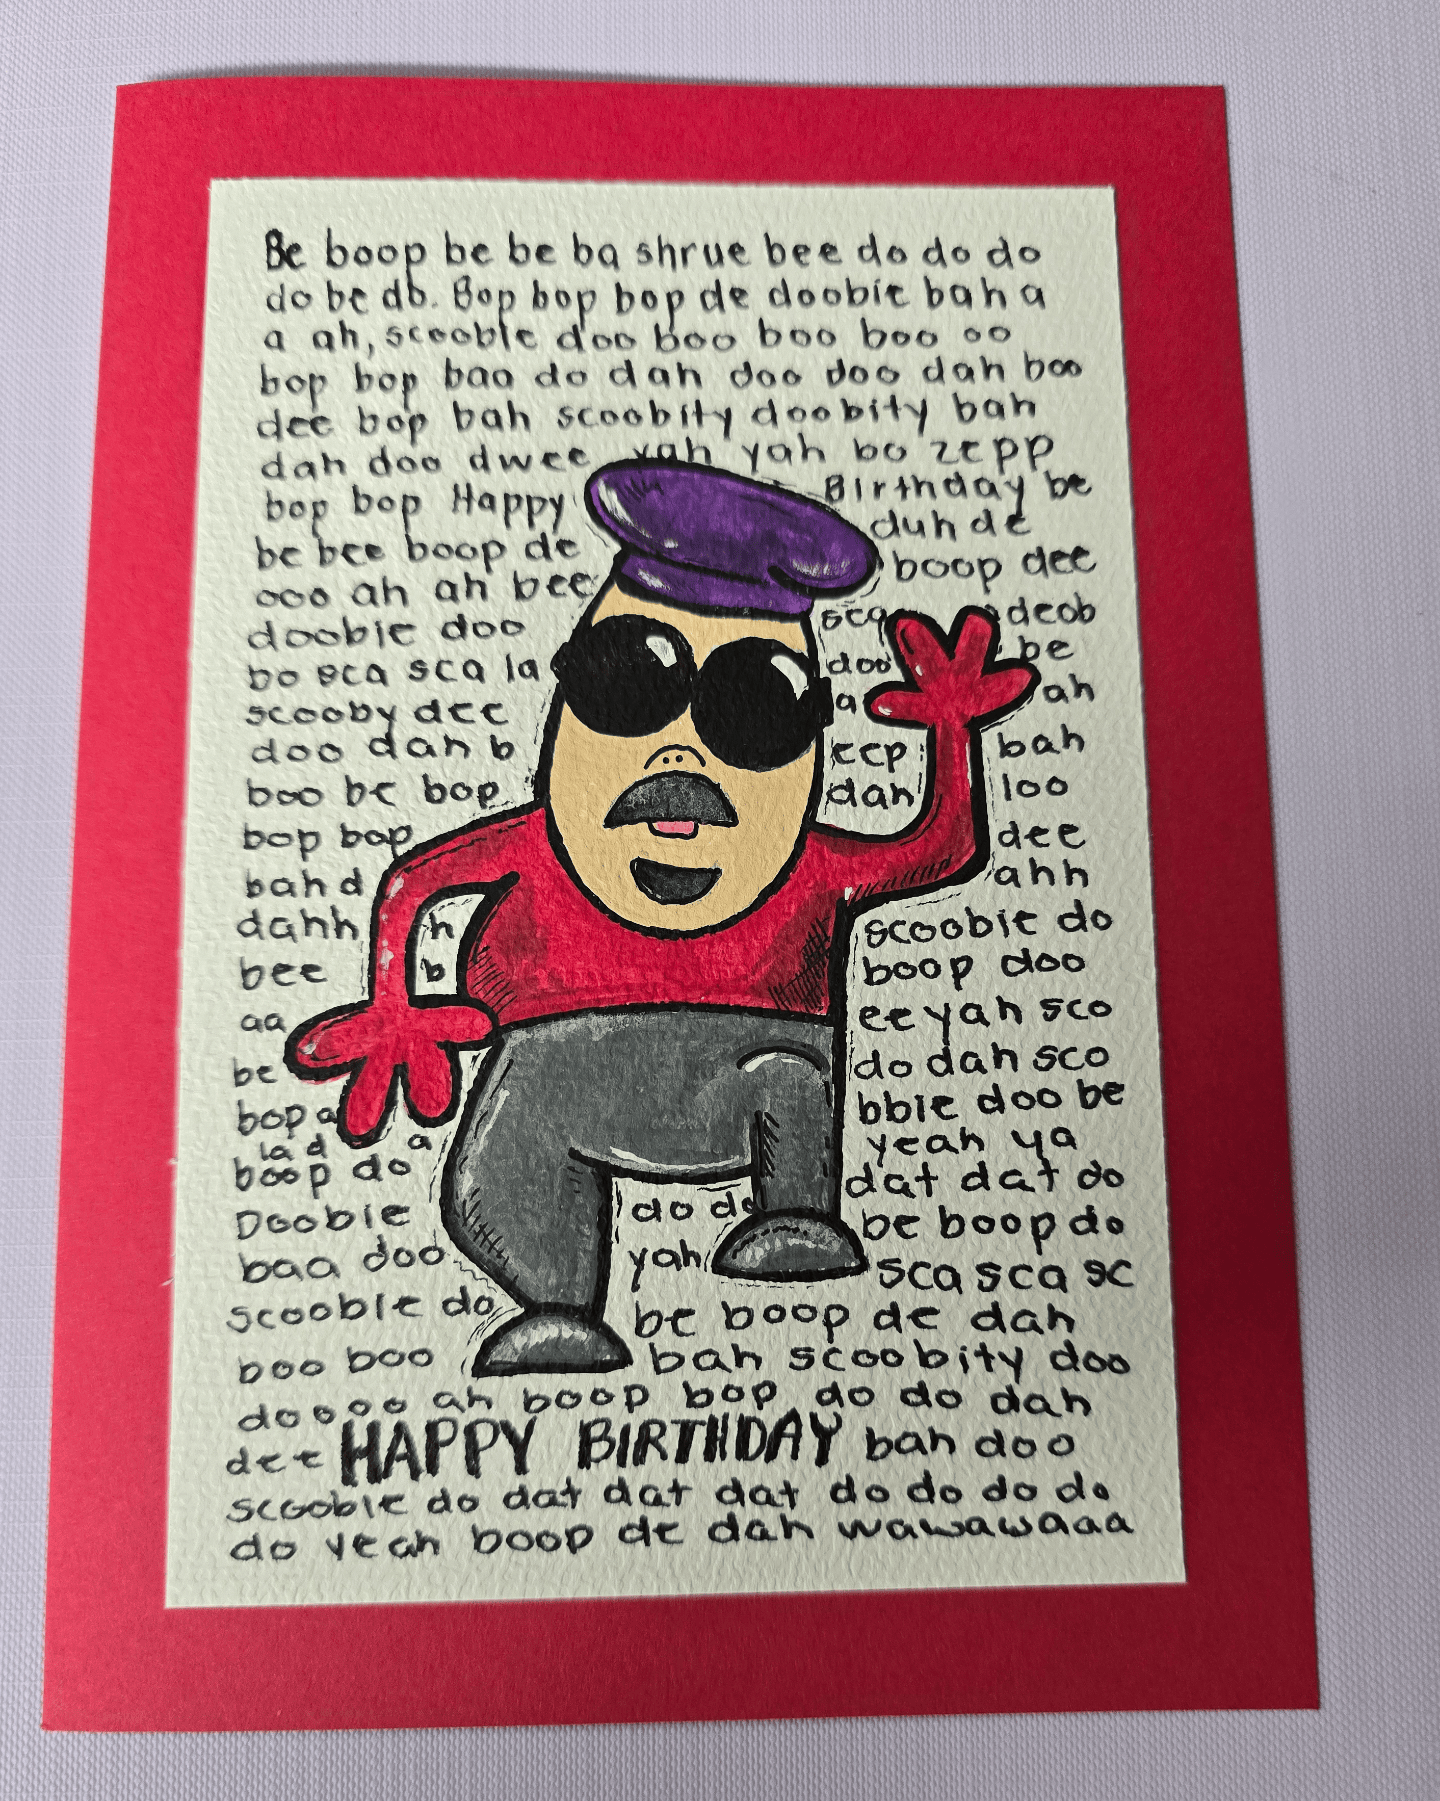 Be boop be be ba shrue bee do do do
do be do. Bop bop bop de doobie bah a
a ah, scoobie doo boo boo boo oo
bop bop baa do dah doo doo dah boo
dee bop bah scoobity doobity bah
dah doo dwee yah yah bo zepp
bop bop Happy Birthday be
be bee boop de duh de
ooo ah ah bee boop dee
doobie doo sca deob
bo sca sca la doo be
scooby dee a ah
doo dah b eep bah
boo be bop dah loo
bop bop dee
bah d ahh
dahh h scoobie do
bee b boop doo
aa ee yah sco
be do dah sco
bop a bbie doo be
la d a yeah ya
boop do dat dat do
Doobie do do be boop do
baa doo yah sca sca sc
scoobie do be boop de dah
boo boo bah scoobity doo
doooo ah boop bop do do dah
dee HAPPY BIRTHDAY bah doo
scoobie do dat dat dat do do do do
do yeah boop de dah wawawaaa